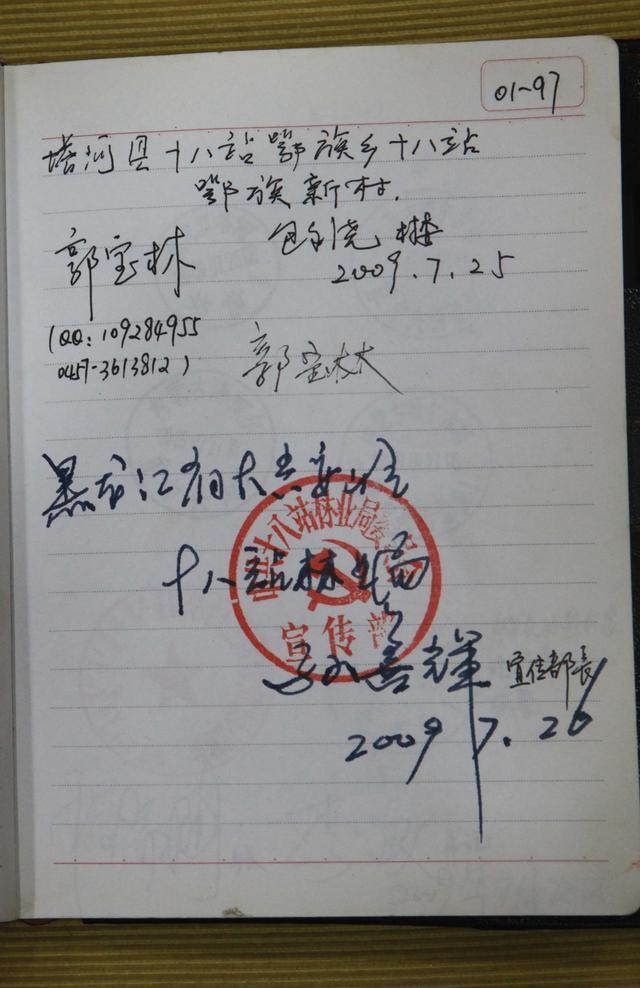 01~97
塔河县十八站鄂族乡十八站
鄂族新村.
郭宝林
2009.7.25
(QQ:109284955
0457-3613812)
郭宝林
黑龙江省大兴安岭
十八站林业局
中共十八站林业局委员会
宣传部
孙喜辉 宣传部长
2009 7.26